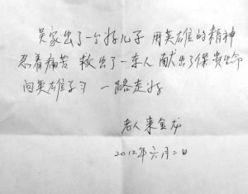 吴家出了一个好儿子 用英雄的精神
忍着痛苦 救出了一车人 献出了保贵生命
向英雄学习 一路走好
老人 来金
2012年六月二日